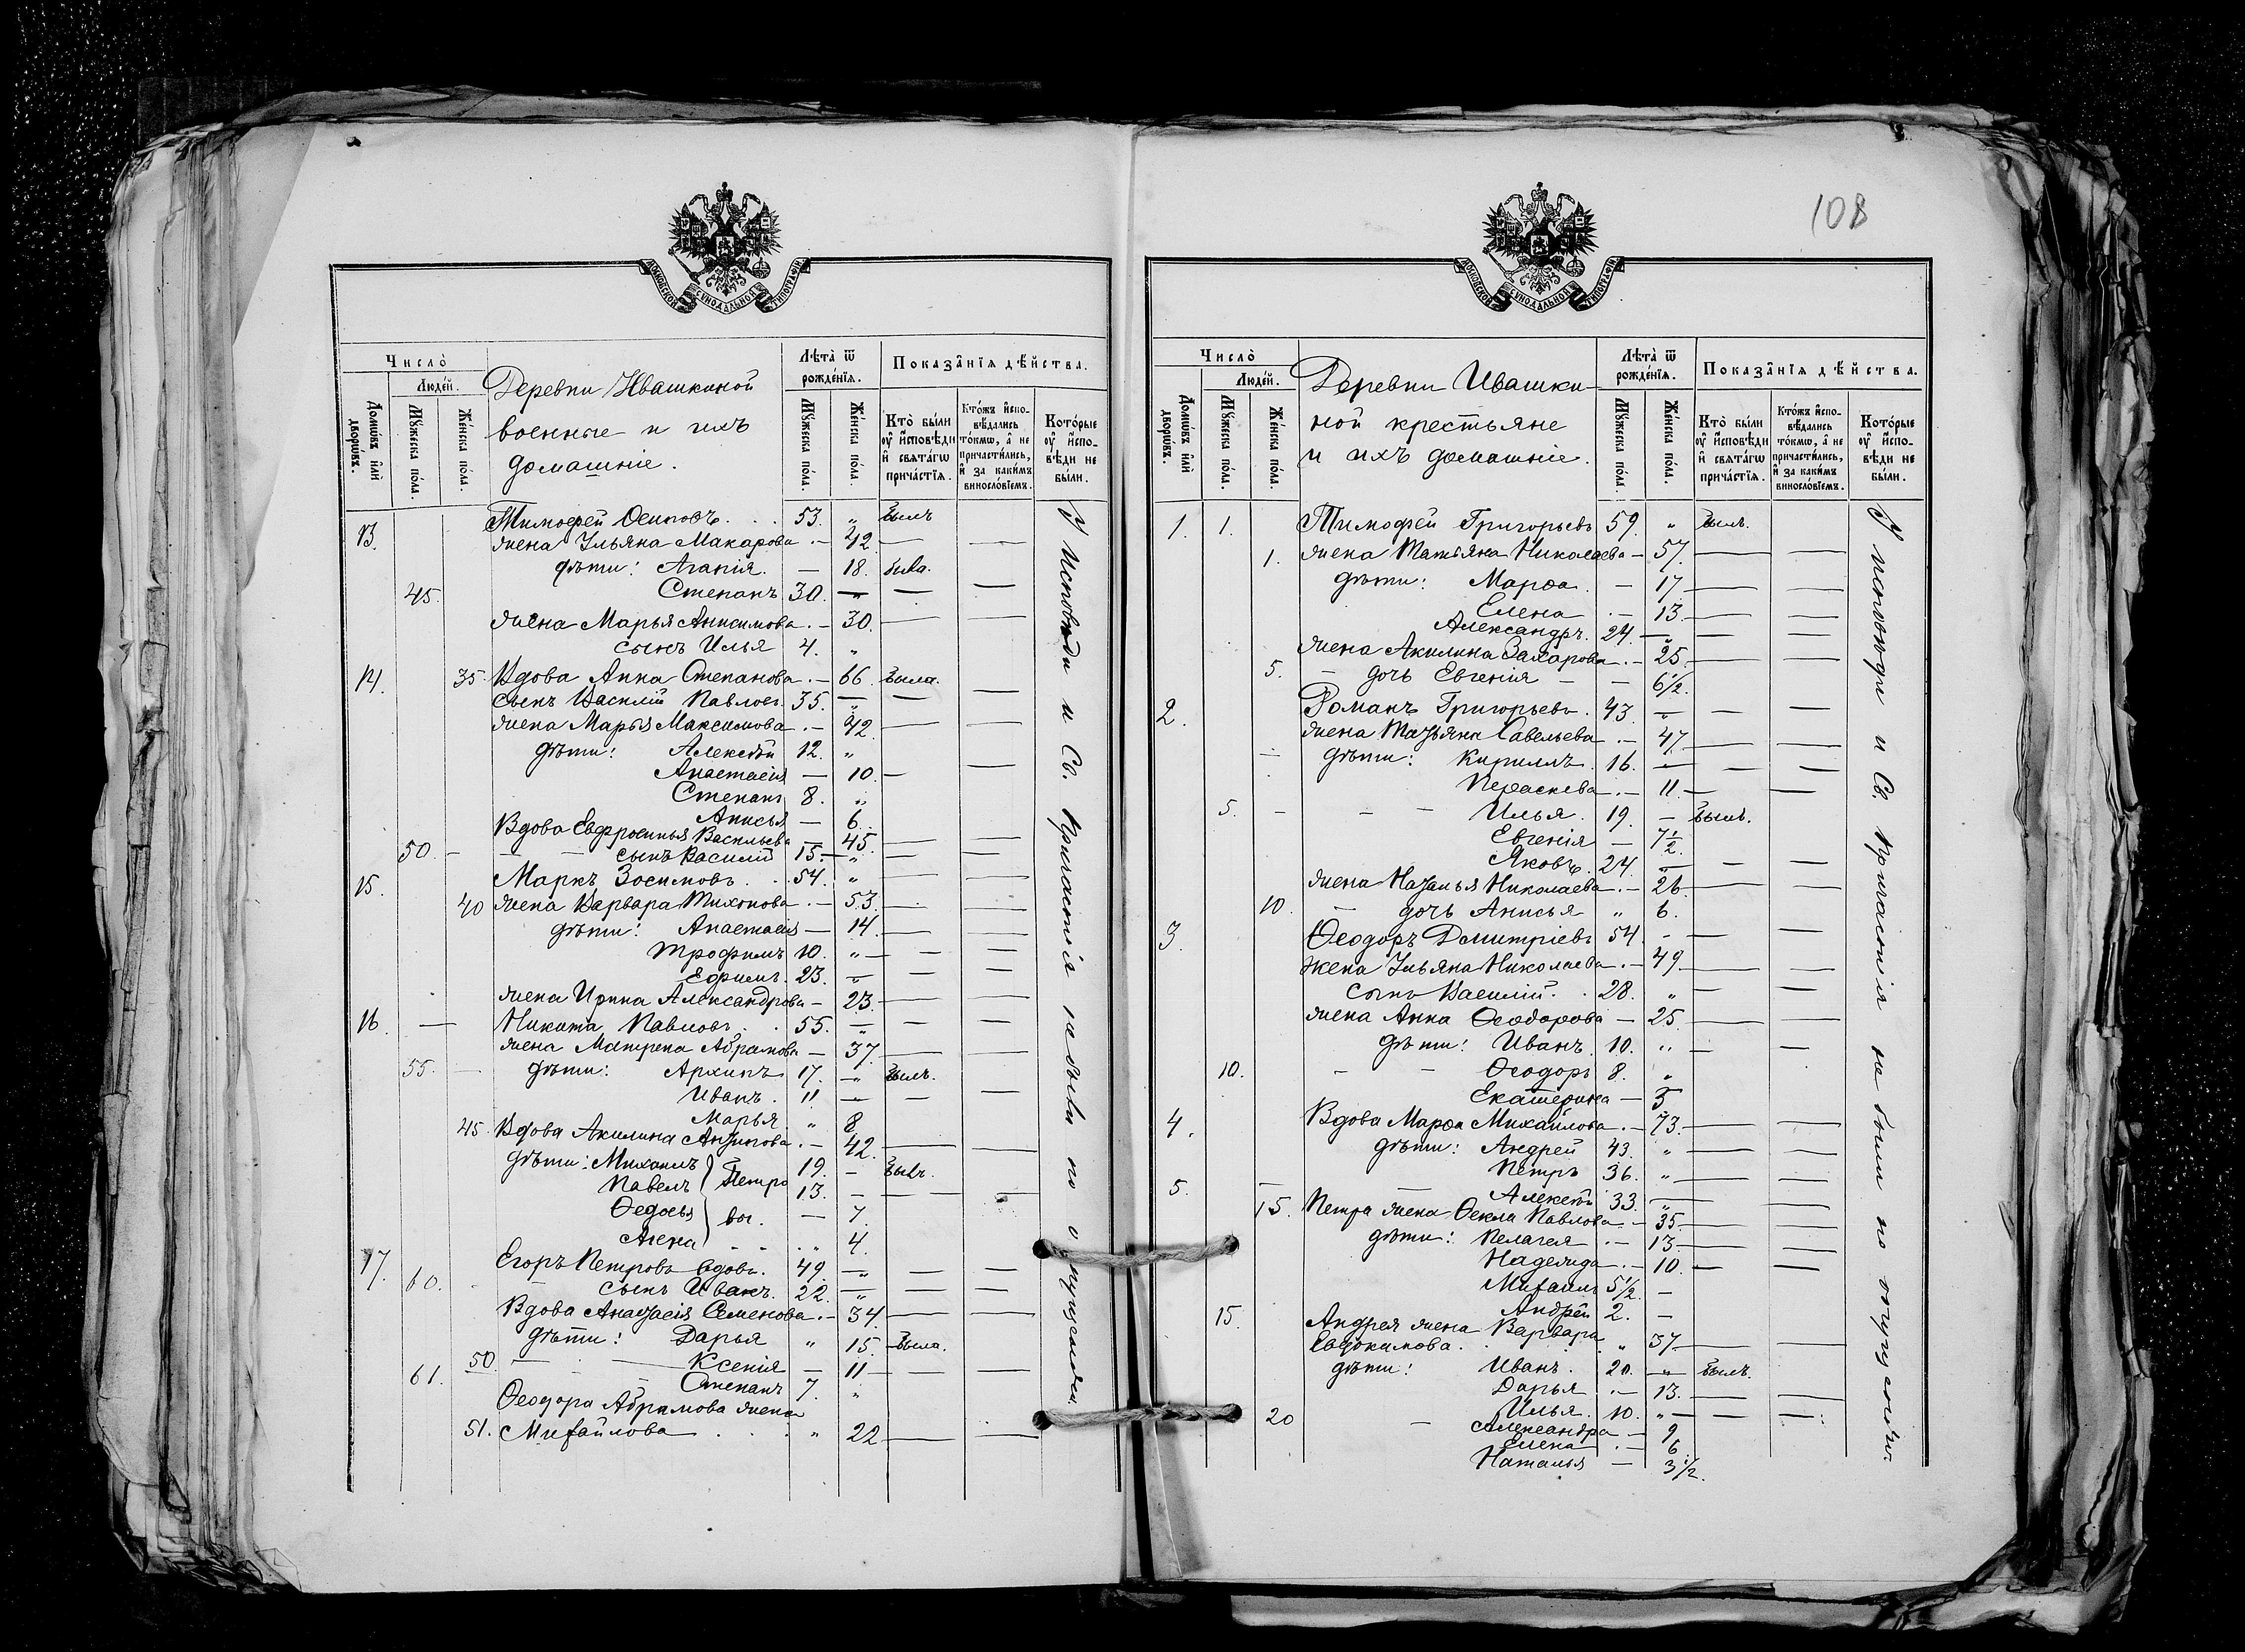 108
МОСКОВСКОЙ СѴНОДАЛЬНОЙ ТИПОГРАФІИ
Число̀
Людéй.
Домѡ́въ и҆лѝ дворѡ́въ.
Мꙋ́жеска пóла.
Же́нска пóла.
Деревни Ивашкиной
военные и ихъ
домашніе.
Лѣ́та ѿ рождéнїя.
Мꙋ́жеска пóла.
Же́нска пóла.
Показа̑нїя дѣ́йства.
Ктò бы́ли ᲂу҆ и҆́сповѣди и҆ свѧта́гѡ прича́стїя.
Кто́жъ и҆спо-вѣ́дались то́кмѡ, а҆ не причасти́лись, и҆ за каки́мъ винослóвїемъ.
Котóрые ᲂу҆ и҆́спо-вѣди не бы́ли.
13. Тимоѳей Осиповъ . . 53. „ Былъ
жена Ульяна Макарова . — 42. — —
дѣти: Агапія. — 18. была.
45. Степанъ 30. — — —
жена Марья Анисимова . — 30. —
сынъ Илья 4. „
14. 35. Вдова Анна Степанова . — 66. Была.
сынъ Василій Павловъ. 35. „ — —
жена Марья Максимова . — 42. — —
дѣти: Алексѣй 12. „
Анастасія — 10. — —
Степанъ 8. „
Анисья — 6.
Вдова Евфросинья Васильева — 45. — —
50. — сынъ Василій 15. — „ — —
15. Маркъ Зосимовъ . . 54. „ — —
40 жена Варвара Тихонова . — 53. — —
дѣти: Анастасія — 14. — —
Трофимъ 10. „ — — —
Ефимъ. 23. „ — —
жена Ирина Александрова — 23. — —
16. — Никита Павловъ . . 55. „ — —
жена Матрена Абрамова — 37. — —
55. — дѣти: Архипъ 17. — „ Былъ.
Иванъ. 11 — — —
Марья „ 8
45. Вдова Акилина Антипова . — 42. — —
дѣти: Михаилъ 19. — Былъ.
Павелъ Петро 13. — — —
Ѳедосья вы. — 7.
Агена . . „ 4.
17. 60. Егоръ Петровъ вдовъ. 49. — „ — —
сынъ Иванъ. 22. „ — —
Вдова Анастасія Семенова . — 34 — —
дѣти: Дарья „ 15. Была.
50. — — Ксенія — 11 — — —
61. Степанъ 7. „
Ѳеодора Абрамова жена
51. Михайлова . . . „ 22 — —
У Исповѣди и Св. Причастія не были по опущенію.
МОСКОВСКОЙ СѴНОДАЛЬНОЙ ТИПОГРАФІИ
Число̀
Людéй.
Домѡ́въ и҆лѝ дворѡ́въ.
Мꙋ́жеска пóла.
Же́нска пóла.
Деревни Ивашки-
ной крестьяне
и ихъ домашніе.
Лѣ́та ѿ рождéнїя.
Мꙋ́жеска пóла.
Же́нска пóла.
Показа̑нїя дѣ́йства.
Ктò бы́ли ᲂу҆ и҆́сповѣди и҆ свѧта́гѡ прича́стїя.
Кто́жъ и҆спо-вѣ́дались то́кмѡ, а҆ не причасти́лись, и҆ за каки́мъ винослóвїемъ.
Котóрые ᲂу҆ и҆́спо-вѣди не бы́ли.
1. 1. Тимоѳей Григорьевъ 59. „ Былъ.
1. жена Татьяна Николаева — 57. — —
дѣти: Марѳа . — 17 — —
Елена . — 13. — —
Александръ. 24. — „ — —
жена Акилина Захарова . — 25. — —
5. — дочь Евгенія — — 6½.
2. Романъ Григорьевъ . 43. „ — —
жена Татьяна Савельева . — 47. — —
— дѣти: Кириллъ. 16. — — —
Параскева . — 11 — —
5. — — — Илья. 19. — Былъ.
Евгенія — 7½.
Яковъ. 24. „ — —
жена Наталья Николаева . — 26 — —
10. — дочь Анисья „ 6.
3. Ѳеодоръ Дмитріевъ 54. „ — —
жена Ульяна Николаева . — 49 — —
сынъ Василій. . 28. „ — —
жена Анна Ѳеодорова — 25. — —
дѣти: Иванъ. 10. „ — —
10. — — Ѳеодоръ 8. „
Екатерина — 5
4. Вдова Марѳа Михайлова . — 73. — —
дѣти: Андрей 43. „ — —
Петръ 36. „ — —
5. — — Алексѣй 33. „ — —
15. Петра жена Ѳекла Павлова — 35. — —
дѣти: Пелагея . — 13 — —
Надежда . — 10. — —
Михаилъ 5½. —
15. Андрей 2. —
Андрея жена Варвара
Евдокимова . . „ 37 — —
дѣти: Иванъ. 20. „ Былъ.
Дарья . — 13. — —
Илья. 10. „ — — —
20 — Александра — 9
Елена . — 6
Наталья — 3½.
У исповѣди и Св. Причастія не были по опущенію.